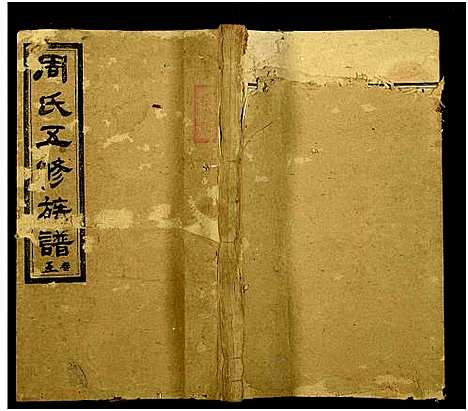 周氏五修族譜
卷五